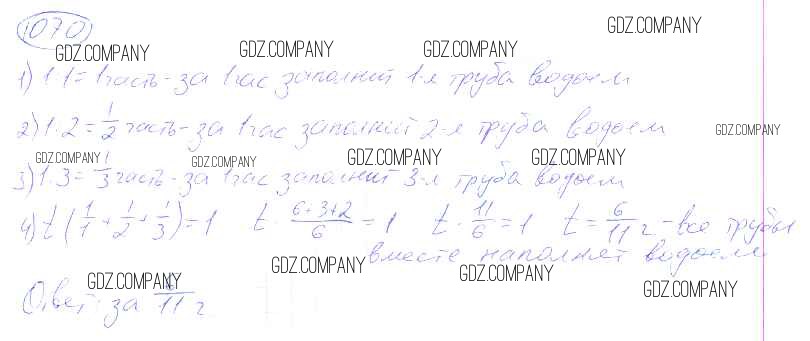 1070
GDZ.COMPANY GDZ.COMPANY GDZ.COMPANY GDZ.COMPANY
1) 1:1=1 часть - за 1 час заполнит 1-я труба водоем
2) 1:2=1/2 часть - за 1 час заполнит 2-я труба водоем
GDZ.COMPANY
GDZ.COMPANY GDZ.COMPANY GDZ.COMPANY GDZ.COMPANY
3) 1:3=1/3 часть - за 1 час заполнит 3-я труба водоем
4) t(1/1+1/2+1/3)=1 t·(6+3+2)/6=1 t·11/6=1 t=6/11 ч - все трубы
вместе наполнят водоем
GDZ.COMPANY GDZ.COMPANY GDZ.COMPANY GDZ.COMPANY
Ответ: за 6/11 ч